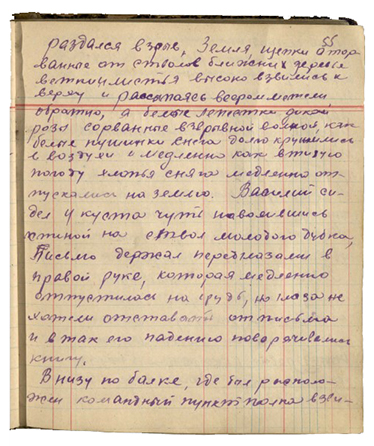 55
раздался взрыв, Земля, щепки отор
ванные от стволов ближних деревье
ветки и листья высоко взвились к
верху и рассыпаясь веером летели
обратно, а белые лепестки дикой
розы сорванные взврывной волной, как
белые пушинки снега долго кружились
в воздухе и медленно как в тихую
погоду хлопья снега медленно от
пускались на землю. Василий си-
дел у куста чуть навалившись
спиной на ствол молодого дубка,
Письмо держал перед глазами в
правой руке, которая медленно
отпустилась на грудь, но глаза не
хотели отставать от письма
и в так его падению поворачивались
книзу.
Внизу по балке, где был располо-
жен командный пункт полка взви-